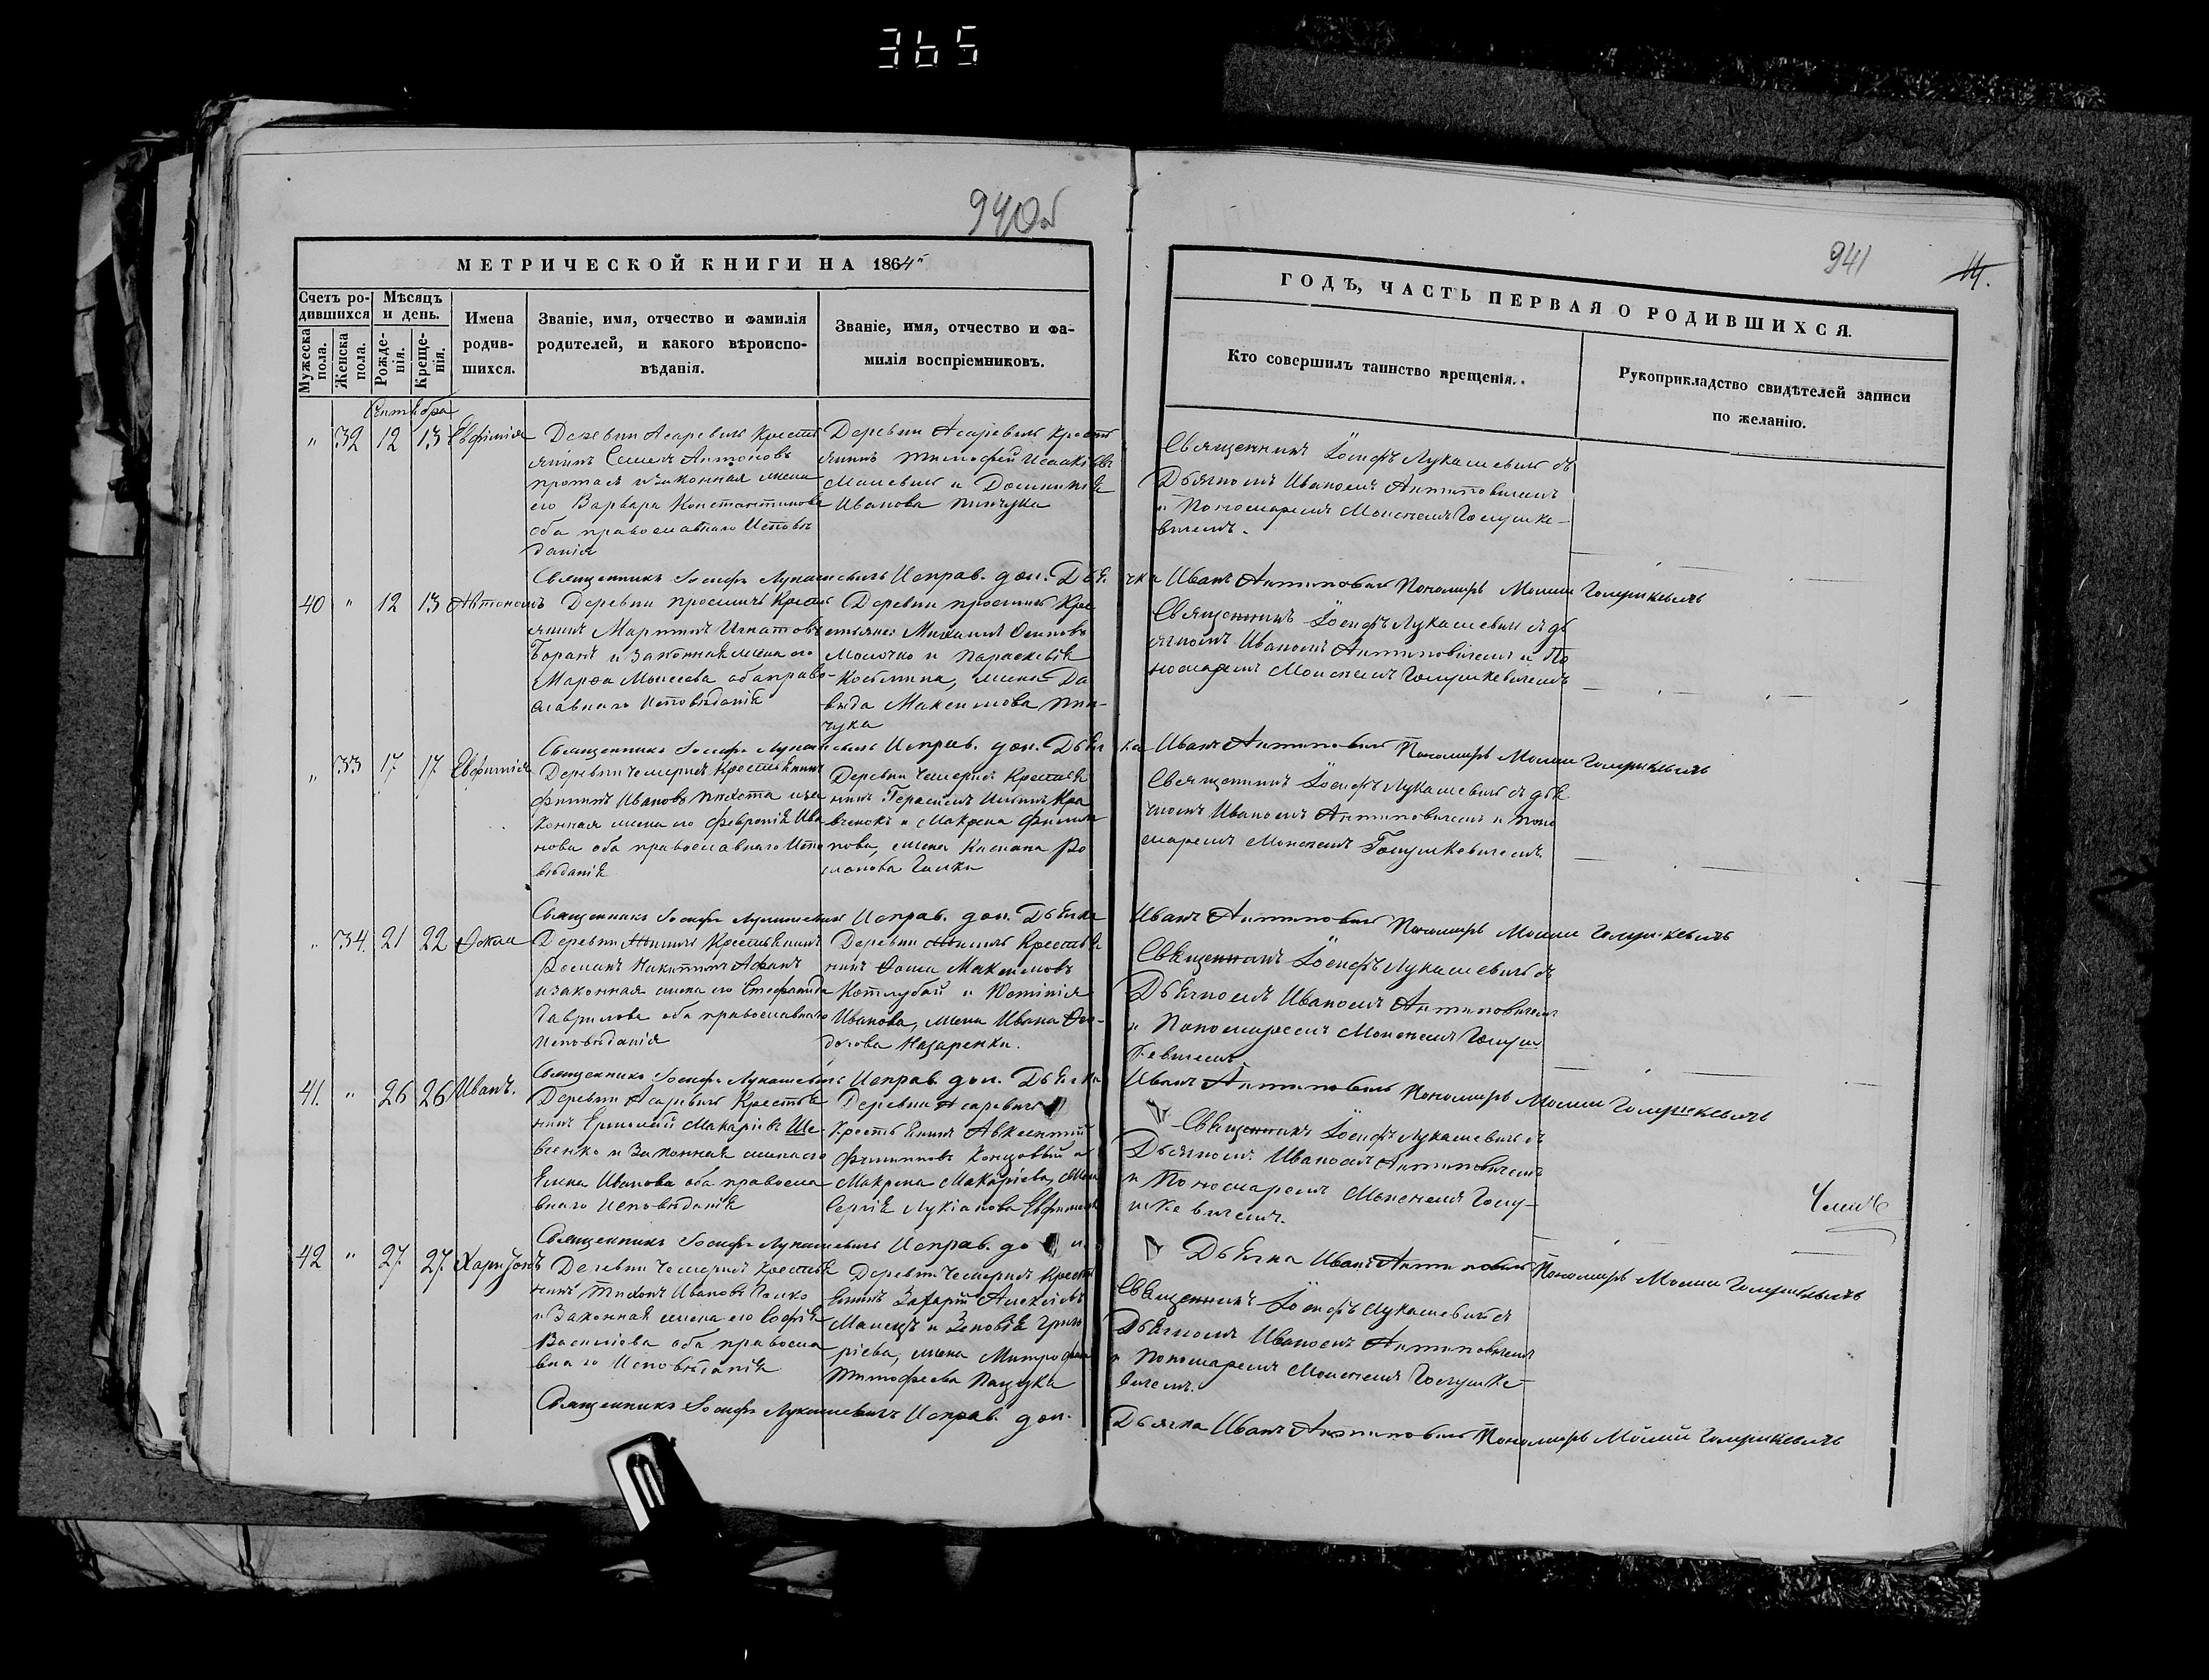 365
940об
МЕТРИЧЕСКОЙ КНИГИ НА 1864
Счетъ ро-
дившихся
Мѣсяцъ
и день.
Мужеска
пола.
Женска
пола.
Рожде-
нія.
Креще-
нія.
Имена
родив-
шихся.
Званіе, имя, отчество и фамилія
родителей, и какого вѣроиспо-
вѣданія.
Званіе, имя, отчество и фа-
милія воспріемниковъ.
Сентября
" 32 12 13 Евфимія
Деревни Асаревичъ Кресть
янинъ Семенъ Антоновъ
и законная жена
его Варвара Константинова
оба православнаго Исповѣ
данія
Деревни Асаревичъ Кресть
янинъ Тимофей
и
Иванова Пинчука
Священникъ Іосифъ Лукашевичъ Исправ. дол. Дья
40 " 12 13 Автономъ
Деревни Кресть
янинъ Мартинъ Игнатовъ
Боранъ и Законная жена его
Марѳа Моисеева оба право-
славнаго Исповѣданія
Деревни Кре
Михаилъ Осиповъ
Молочко и Параскевія
жена Да
вида Максимова Пин-
чука
Священникъ Іосифъ Лукашевичъ Исправ. дол. Дьяч
" 33 17 17 Евфимія
Деревни Чемеринъ Крестьянинъ
Иванова и за
конная жена его Февронія Ива
нова оба православнаго Испо
вѣданія
Деревни Чемеринъ Крестья
нинъ Герасимъ Кра
вченокъ и Макрена Филип
пова, жена Ро
манова Галки
Священникъ Іосифъ Лукашевичъ Исправ. дол. Дьячка
" 34. 21 22
Деревни Крестьянинъ
Романъ Никитинъ
и законная жена его Стефанида
Гаврилова оба православнаго
Исповѣданія
Деревни Крестья
нинъ Ѳома Максимовъ
Котлубай и
Иванова, жена Ивана Ѳео-
дорова Назаренки.
Священникъ Іосифъ Лукашевичъ Исправ. дол. Дьячка
41. " 26 26 Иванъ.
Деревни Асаревичъ Крестья
нинъ Макаріевъ Ше-
вченко и Законная жена его
Елена Иванова оба правосла
внаго Исповѣданія
Деревни Асаревичъ
Крестьянинъ Авксентій
Филиповъ и
Макрена Макаріева, жена
Сергія Лукіанова
Священникъ Іосифъ Лукашевичъ Исправ. дол.
42 " 27. 27. Харитонъ
Деревни Чемеринъ Крестья
нинъ Тихонъ Ивановъ Галко
и Законная жена его Софія
Василіова оба правосла
внаго Исповѣданія
Деревни Чемеринъ Кресть
янинъ Захарій Алексѣевъ
и Зеновія Григо
ріева, жена Митрофана
Тимофеева
Священникъ Іосифъ Лукашевичъ Исправ. дол.
941
14.
ГОДЪ, ЧАСТЬ ПЕРВАЯ О РОДИВШИХСЯ.
Кто совершилъ таинство крещенія.
Рукоприкладство свидѣтелей записи
по желанію.
Священникъ Іосифъ Лукашевичъ съ
Дьячкомъ Иваномъ Антиповичемъ
и Пономаремъ Моисеемъ Голушке-
вичемъ.
чка Иванъ Антиповичъ Пономарь Моисей Голушкевичъ
Священникъ Іосифъ Лукашевичъ съ дь
ячкомъ Иваномъ Антиповичемъ и По
номаремъ Моисеемъ Голушкевичемъ
ка Иванъ Антиповичъ Пономарь Моисей Голушкевичъ
Священникъ Іосифъ Лукашевичъ съ дья
чкомъ Иваномъ Антиповичемъ и Поно
маремъ Моисеемъ Голушкевичемъ
Иванъ Антиповичъ Пономарь Моисей Голушкевичъ
Священникъ Іосифъ Лукашевичъ съ
Дьячкомъ Иваномъ Антиповичемъ
и Пономаремъ Моисеемъ Голуш
кевичемъ.
Иванъ Антиповичъ Пономарь Моисей Голушкевичъ
Священникъ Іосифъ Лукашевичъ съ
Дьячкомъ Иваномъ Антиповичемъ
и Пономаремъ Моисеемъ Голу-
шкевичемъ.
Дьячка Иванъ Антиповичъ Пономарь Моисей Голушкевичъ
Священникъ Іосифъ Лукашевичъ съ
Дьячкомъ Иваномъ Антиповичемъ
и Пономаремъ Моисеемъ Голушке-
вичемъ.
Дьячка Иванъ Антиповичъ Пономарь Моисей Голушкевичъ